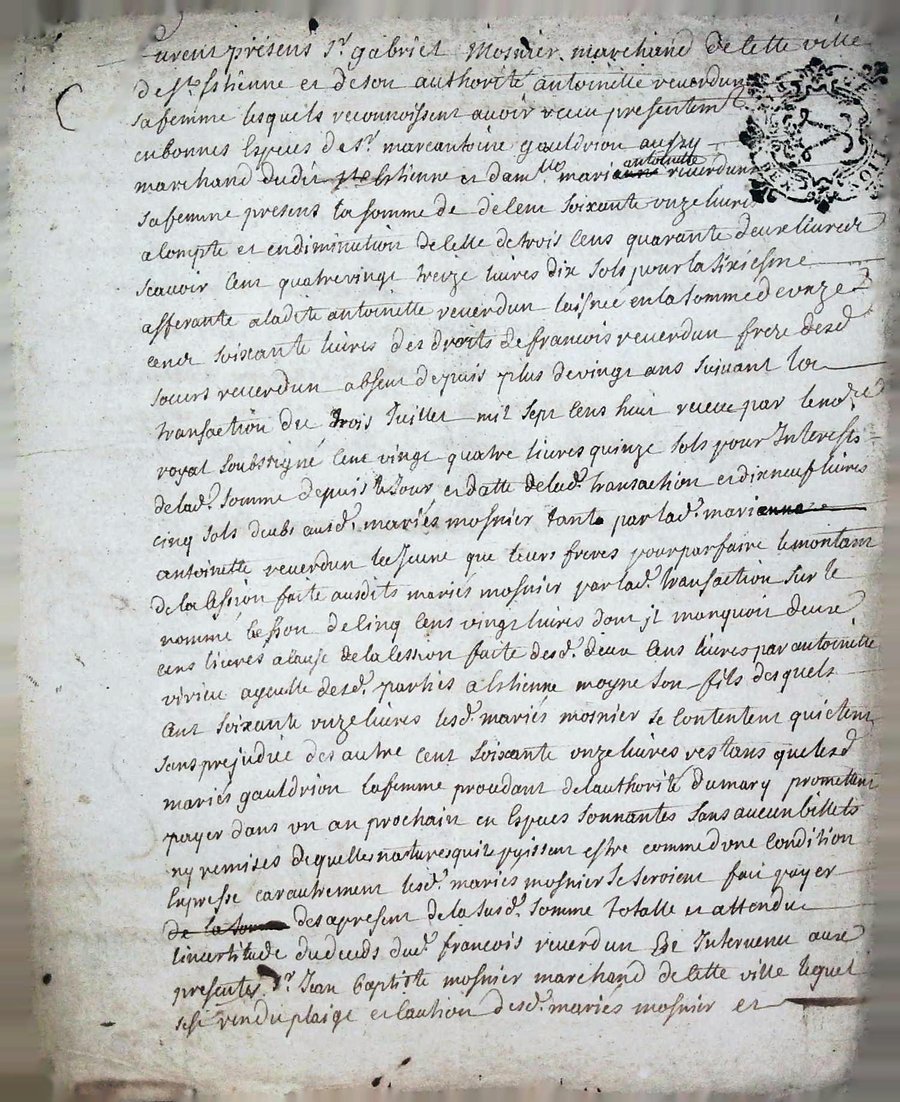 urent présens sr. gabriel Mosnier marchand de Cette ville
de st. Estienne et de son authorité antoinette reuerdun
sa femme lesquels reconnoissent avoir receu presentemt.
en bonnes Especes de sr. marcantoine gauldrion aussy
marchand dudit ste Estienne et damlle. mari anne antoinette reuerdun
sa femme present la somme de de Cent soixante onze liures
a Compte et en diminution de Celle de trois Cens quarante deux liures
scauoir Cent quatre vingt treize liures dix sols pour la sixiesme
afferante a ladite antoinette reuerdun laisnée en la somme de onze
cens soixante liures des droits de francois reuerdun frere desd
soeurs reuerdun absent depuis plus de vingt ans suiuant la
transaction du trois Juillet mil sept Cens huit receue par le no.re
royal soubssigné Cent vingt quatre liures quinze sols pour Interests
de lad. somme depuis le Jour et datte de lad. transaction et dix neuf liures
cinq sols deubs ausd. mariés mosnier tant par lad. marianne
antoinette reuerdun la Jeune que leurs freres pour parfaire le montant
de la Cession faite ausdits mariés mosnier par lad. transaction sur le
nommé besson de Cinq Cens vingt liures dont il manquoit deux
cens liures a Cause de la Cession faite desd. deux Cens liures par antoinette
virieu ayeulle desd. parties a Estienne moyne son fils desquels
Cent soixante onze liures lesd. mariés mosnier se Contentent quictent
sans prejudice des autre Cent soixante onze liures restans que lesd
mariés gauldrion la femme procedant de lauthorité du mary promettent
payer dans vn an prochain en Especes sonnantes sans aucun billets
ny remises de quelle nature quil puissent estre comme d vne condition
Expresse car autrement lesd. mariés mosnier se seroient fait payer
de la somme des a present de la susd. somme totalle et attendu
lincertitude du deceds dud. francois reuerdun Est Interuenu aux
presentes sr. Jean Baptiste mosnier marchand de Cette ville lequel
sest rendu plaige et Caution desd. mariés mosnier et